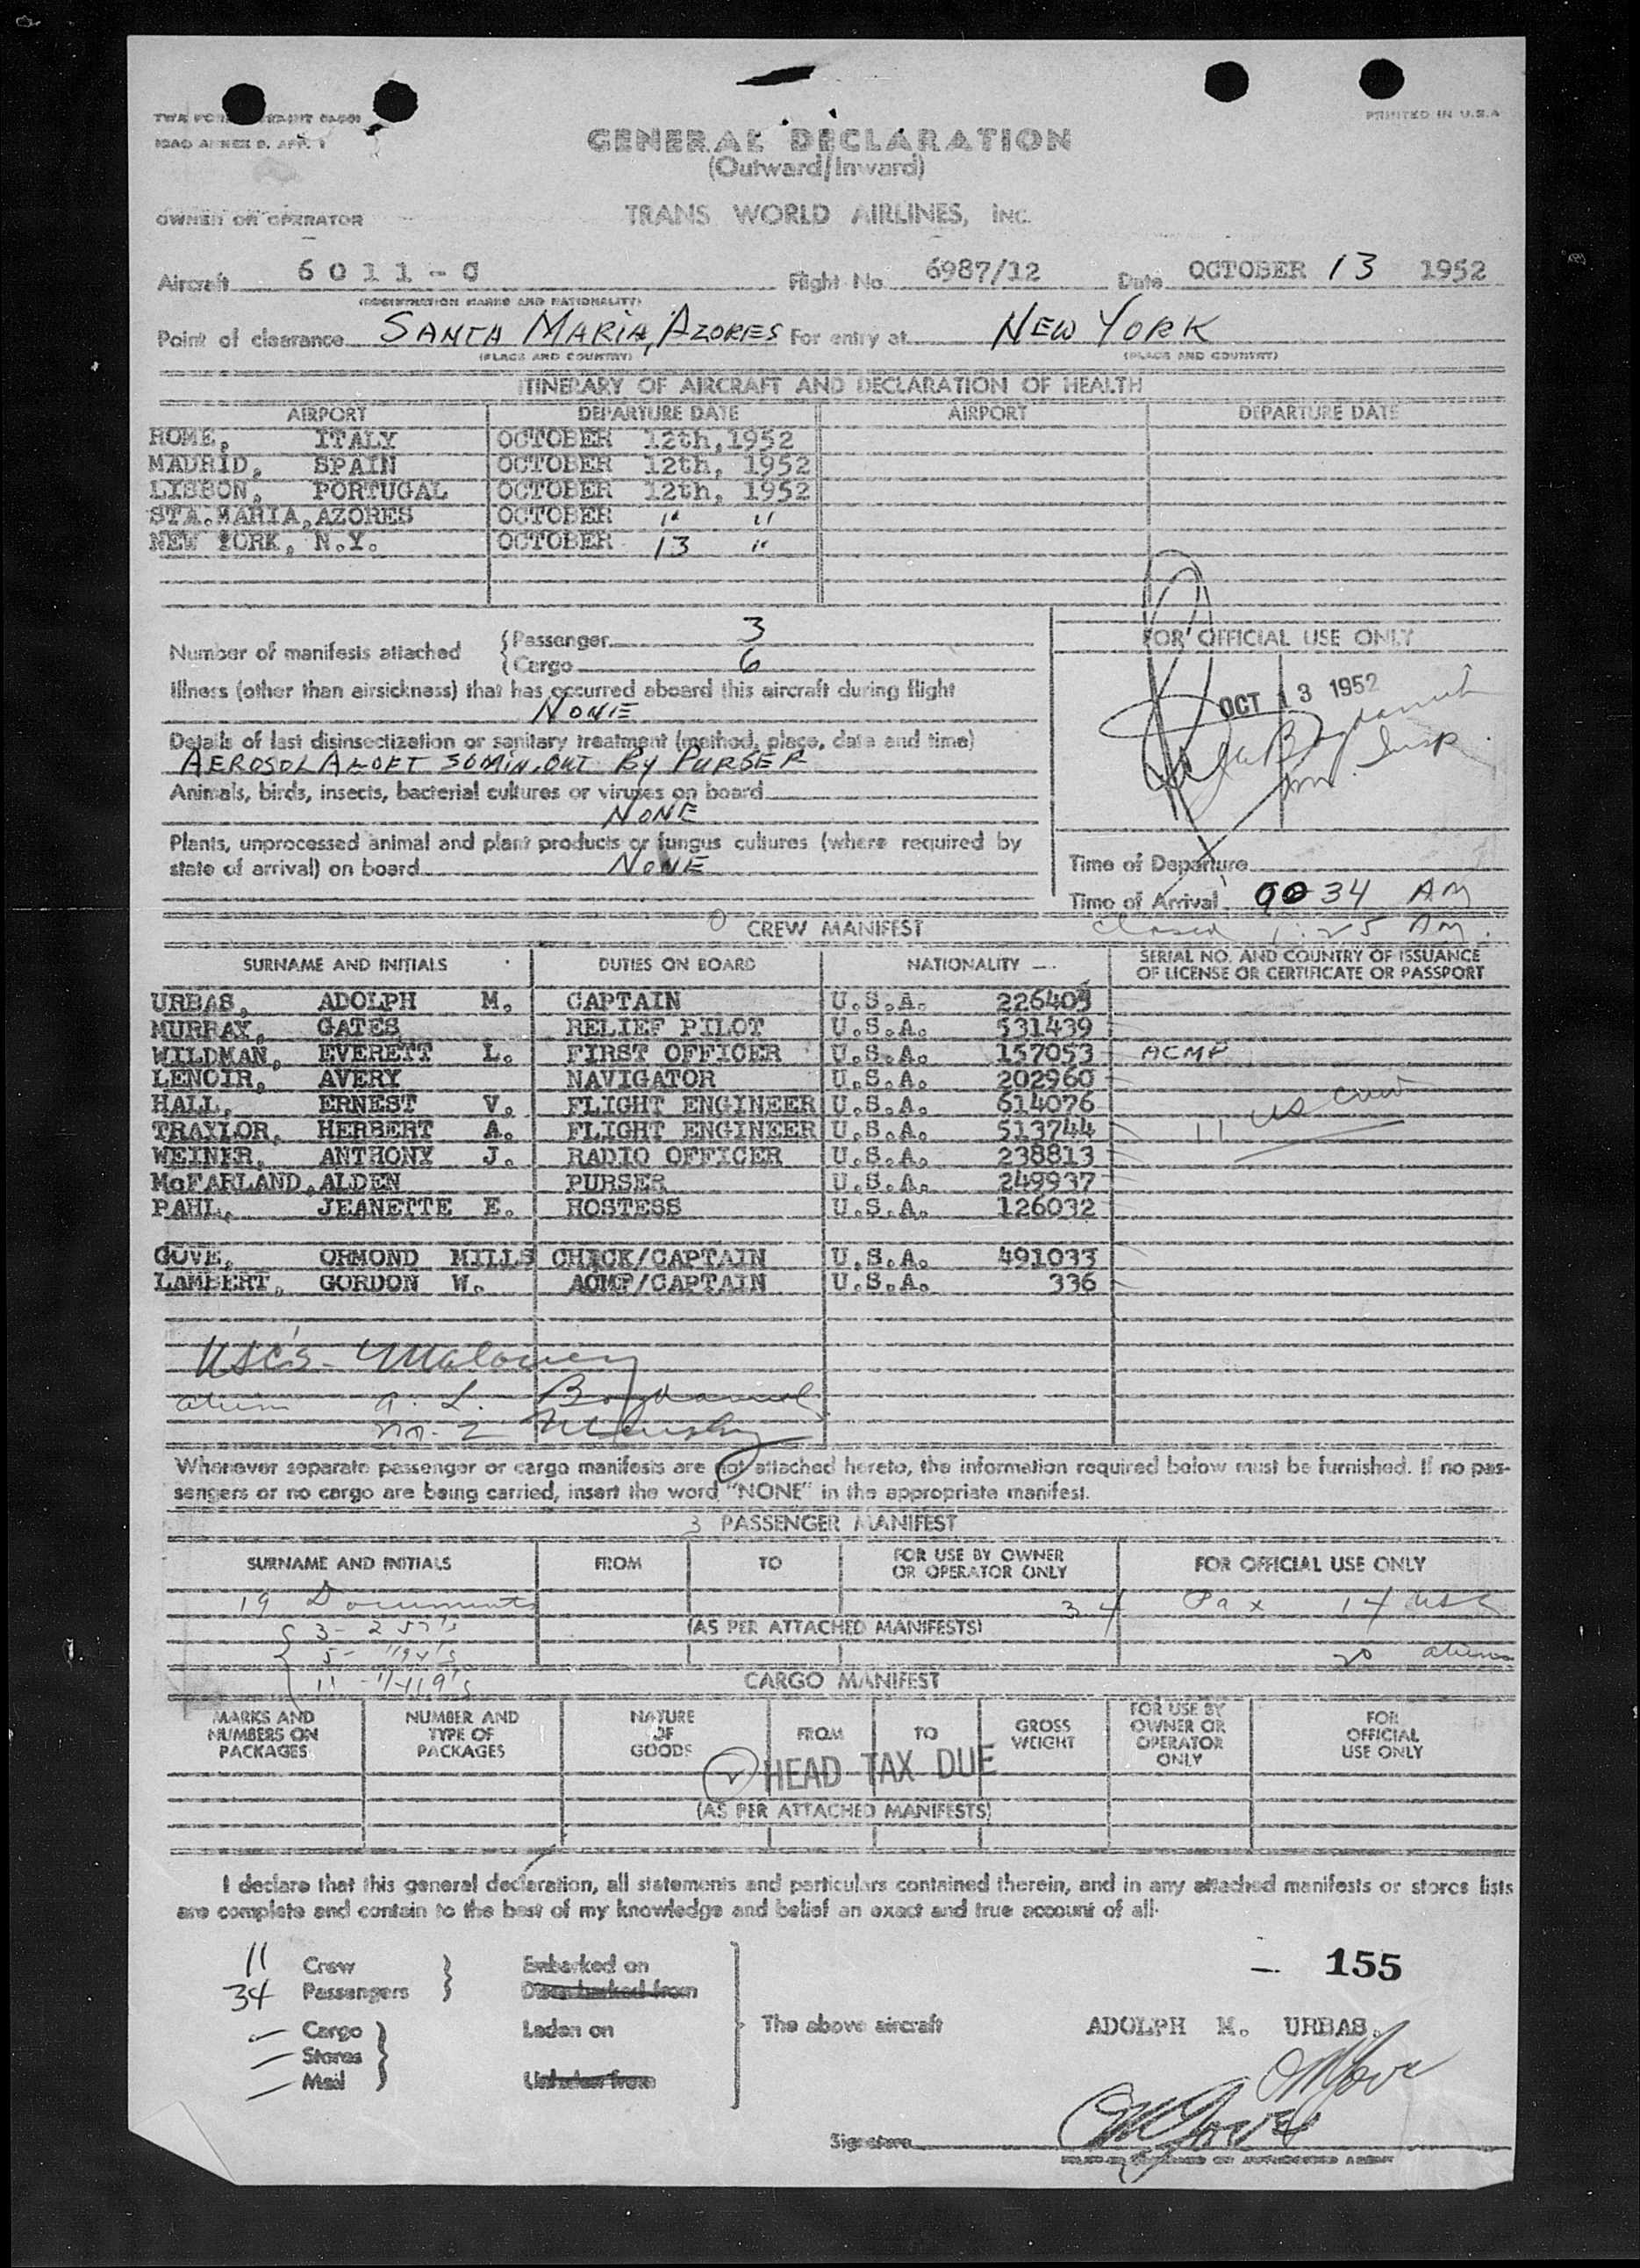 PRINTED IN U.S.A
GENERAL DECLARATION
(Outward/Inward)
OWNER OR OPERATOR TRANS WORLD AIRLINES, INC.
Aircraft 6011-C Flight No. 6987/12 Date OCTOBER 13 1952
(REGISTRATION MARKS AND NATIONALITY)
Point of clearance SANTA MARIA, AZORES For entry at NEW YORK
(PLACE AND COUNTRY) (PLACE AND COUNTRY)
ITINERARY OF AIRCRAFT AND DECLARATION OF HEALTH
AIRPORT DEPARTURE DATE AIRPORT DEPARTURE DATE
ROME, ITALY OCTOBER 12th, 1952
MADRID, SPAIN OCTOBER 12th, 1952
LISBON, PORTUGAL OCTOBER 12th, 1952
STA. MARIA, AZORES OCTOBER " "
NEW YORK, N.Y. OCTOBER 13 "
Number of manifests attached { Passenger 3
{ Cargo 6
Illness (other than airsickness) that has occurred aboard this aircraft during flight
NONE
Details of last disinsectization or sanitary treatment (method, place, date and time)
AEROSOL ALOFT 30MIN. OUT BY PURSER
Animals, birds, insects, bacterial cultures or viruses on board
NONE
Plants, unprocessed animal and plant products or fungus cultures (where required by
state of arrival) on board NONE
FOR OFFICIAL USE ONLY
OCT 13 1952
Insp.
Time of Departure
Time of Arrival 0034 AM
closed 1:25 AM.
CREW MANIFEST
SURNAME AND INITIALS DUTIES ON BOARD NATIONALITY SERIAL NO. AND COUNTRY OF ISSUANCE OF LICENSE OR CERTIFICATE OR PASSPORT
URBAS, ADOLPH M. CAPTAIN U.S.A. 226409
MURRAY, GATES RELIEF PILOT U.S.A. 531439
WILDMAN, EVERETT L. FIRST OFFICER U.S.A. 157053 ACMP
LENOIR, AVERY NAVIGATOR U.S.A. 202960
HALL, ERNEST V. FLIGHT ENGINEER U.S.A. 614076
TRAYLOR, HERBERT A. FLIGHT ENGINEER U.S.A. 513744 11 US crew
WEINER, ANTHONY J. RADIO OFFICER U.S.A. 238813
McFARLAND, ALDEN PURSER U.S.A. 249937
PAHL, JEANETTE E. HOSTESS U.S.A. 126032
GOVE, ORMOND MILLS CHECK/CAPTAIN U.S.A. 491033
LAMBERT, GORDON W. ACMP/CAPTAIN U.S.A. 336
USC's
Whenever separate passenger or cargo manifests are not attached hereto, the information required below must be furnished. If no pas-
sengers or no cargo are being carried, insert the word "NONE" in the appropriate manifest.
3 PASSENGER MANIFEST
SURNAME AND INITIALS FROM TO FOR USE BY OWNER OR OPERATOR ONLY FOR OFFICIAL USE ONLY
19 Documents 34 Pax 14 USC
3 - 257's (AS PER ATTACHED MANIFESTS)
20 aliens
CARGO MANIFEST
MARKS AND NUMBERS ON PACKAGES NUMBER AND TYPE OF PACKAGES NATURE OF GOODS FROM TO GROSS WEIGHT FOR USE BY OWNER OR OPERATOR ONLY FOR OFFICIAL USE ONLY
HEAD TAX DUE
(AS PER ATTACHED MANIFESTS)
I declare that this general declaration, all statements and particulars contained therein, and in any attached manifests or stores lists
are complete and contain to the best of my knowledge and belief an exact and true account of all.
11 Crew } Embarked on
34 Passengers } Disembarked from
Cargo } Laden on
Stores }
Mail } Unladen from
The above aircraft
155
ADOLPH M. URBAS.
OM Gove
Signature OM Gove